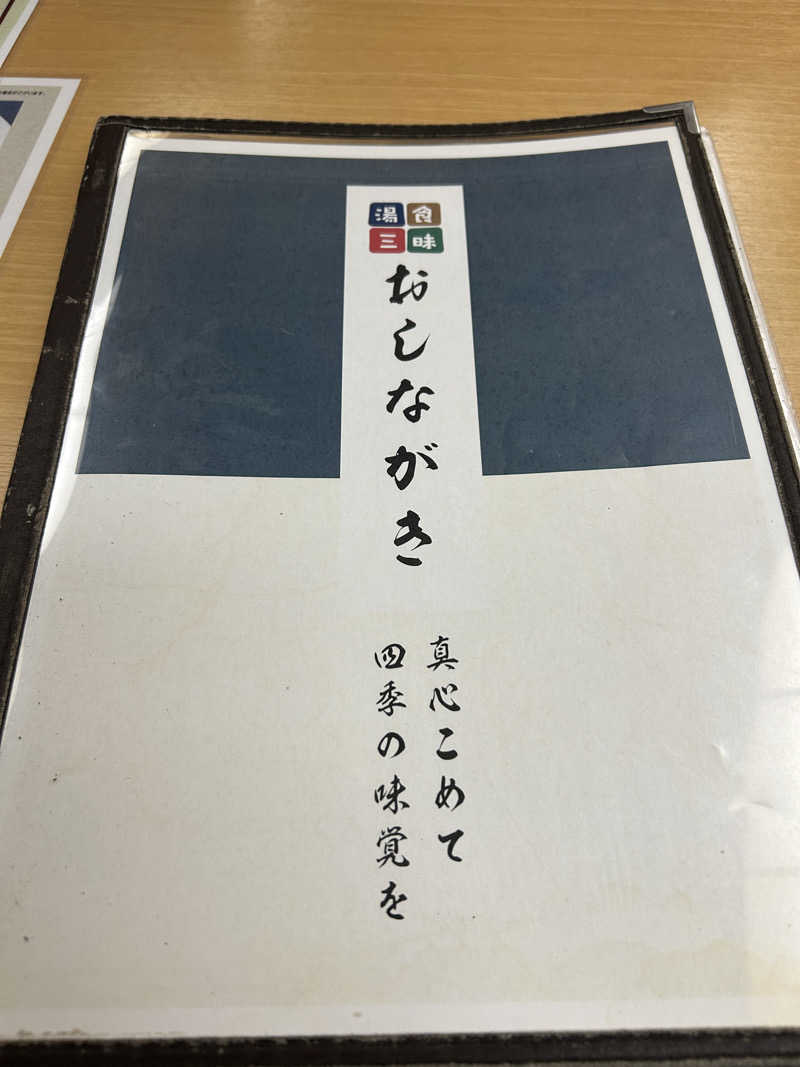 湯食
三昧
おしながき
真心こめて
四季の味覚を